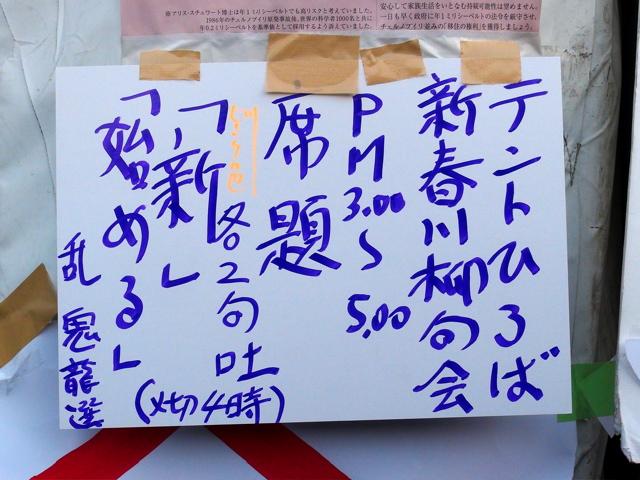 アリス・スチュワート博士は年1ミリシーベルトでも高リスクと考えていました。
1986年のチェルノブイリ原発事故後、世界の科学者1000名と共に
年0.2ミリシーベルトを基準値として採用するよう訴えていました。
安心して家族生活をいとなむ持続可能性は望めません。
一日も早く政府に年1ミリシーベルトの法令を厳守させ、
チェルノブイリ並みの「移住の権利」を獲得しましょう。
テントひろば
新春川柳句会
PM3.00〜5.00
席題
各2句吐
「新」
「始める」
(〆切4時)
乱鬼龍選